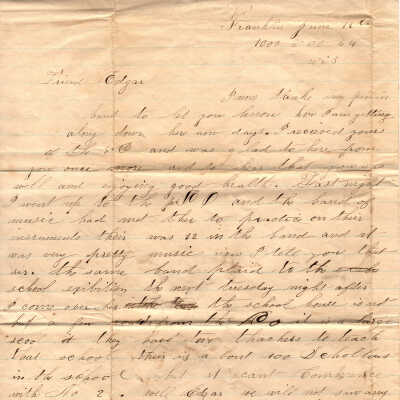 Franklin June 12th
Friend Edgar
I now take my pen in
hand to let you know how I am getting
along down here now days. I received yours
and was glad to here from
you once more and to hear that you was
well and enjoying good health. Last night
I went up to the and the band of
music had met ther to practice on their
insruments their was 22 in the band and it
was very pretty music now I tell you that
sir. the same band plaid to the
school exibition the next tuesday night after
I come over the school house is not
but a few rods from the P.O. it is a large
one and they have two theachers to teach
that school their is a bout 100 Schollors
in the school but it cant Compare
with No 2. well Edgar we will not say any